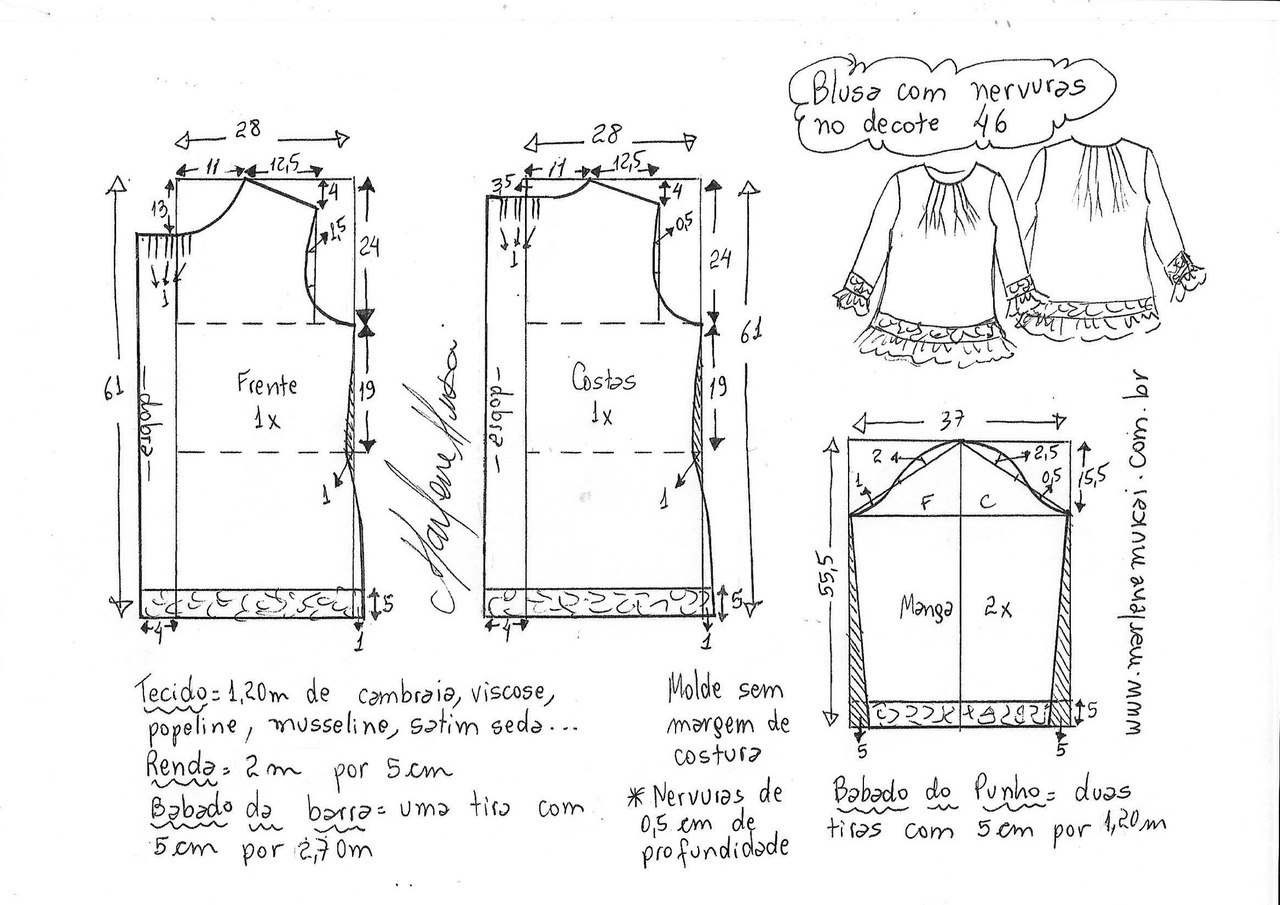 Blusa com nervuras
no decote 46
28
11
12,5
4
13
1,5
24
1
61
dobra
Frente
1x
19
1
5
4
1
Marlene Mukai
28
3,5
11
12,5
4
0,5
24
1
61
dobra
Costas
1x
19
1
5
4
1
37
2
2,5
1
0,5
15,5
F
C
55,5
Manga
2x
5
5
5
www.marlenemukai.com.br
Tecido= 1,20m de cambraia, viscose,
popeline, musseline, satim seda...
Renda= 2m por 5cm
Babado da barra= uma tira com
5cm por 2,70m
Molde sem
margem de
costura
* Nervuras de
0,5 cm de
profundidade
Babado do Punho= duas
tiras com 5cm por 1,20m